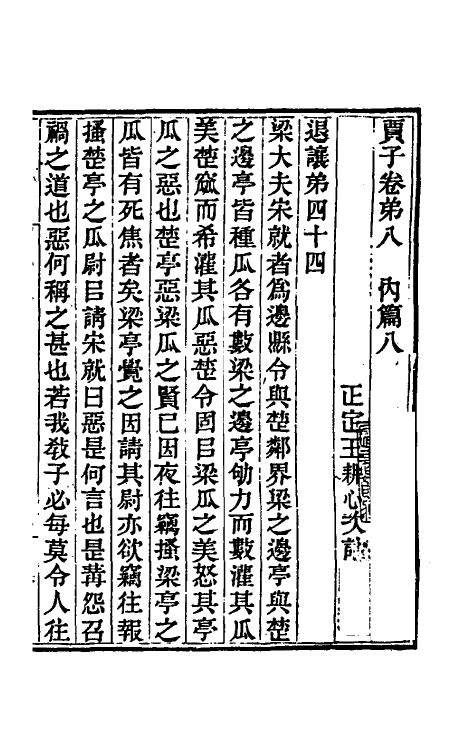 賈子卷弟八　內篇八
正定王耕心次詁
退讓弟四十四
梁大夫宋就者爲邊縣令與楚鄰界梁之邊亭與楚
之邊亭皆種瓜各有數梁之邊亭劬力而數灌其瓜
美楚窳而希灌其瓜惡楚令固㠯梁瓜之美怒其亭
瓜之惡也楚亭惡梁瓜之賢己因夜往竊搔梁亭之
瓜皆有死焦者矣梁亭覺之因請其尉亦欲竊往報
搔楚亭之瓜尉㠯請宋就曰惡是何言也是冓怨召
禍之道也惡何稱之甚也若我敎子必每莫令人往